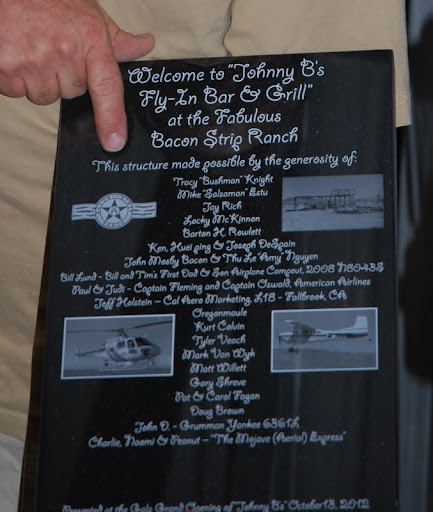 Welcome to "Johnny B's
Fly-In Bar & Grill"
at the Fabulous
Bacon Strip Ranch
This structure made possible by the generosity of:
Tracy "Bushman" Knight
Mike "Salsaman" Estu
Jay Rich
Locky McKinnon
Barton H. Rowlett
Ken, Huei ping & Joseph DeSpain
John Mosby Bacon & Thu Le "Amy" Nguyen
Bill Lund - Bill and Tim's First Dad & Son Airplane Campout, 2008 N8043S
Paul & Judi - Captain Fleming and Captain Oswald, American Airlines
Jeff Holstein - Cal Aero Marketing, L18 - Fallbrook, CA
Oregonmaule
Kurt Colvin
Tyler Veach
Mark Van Wyk
Matt Willett
Gary Shreve
Pat & Carol Fagan
Doug Brown
John O. - Grumman Yankee 6361L
Charlie, Naomi & Peanut - "The Mojave (Aerial) Express"
Presented at the Gala Grand Opening of "Johnny B's" October 13, 2012